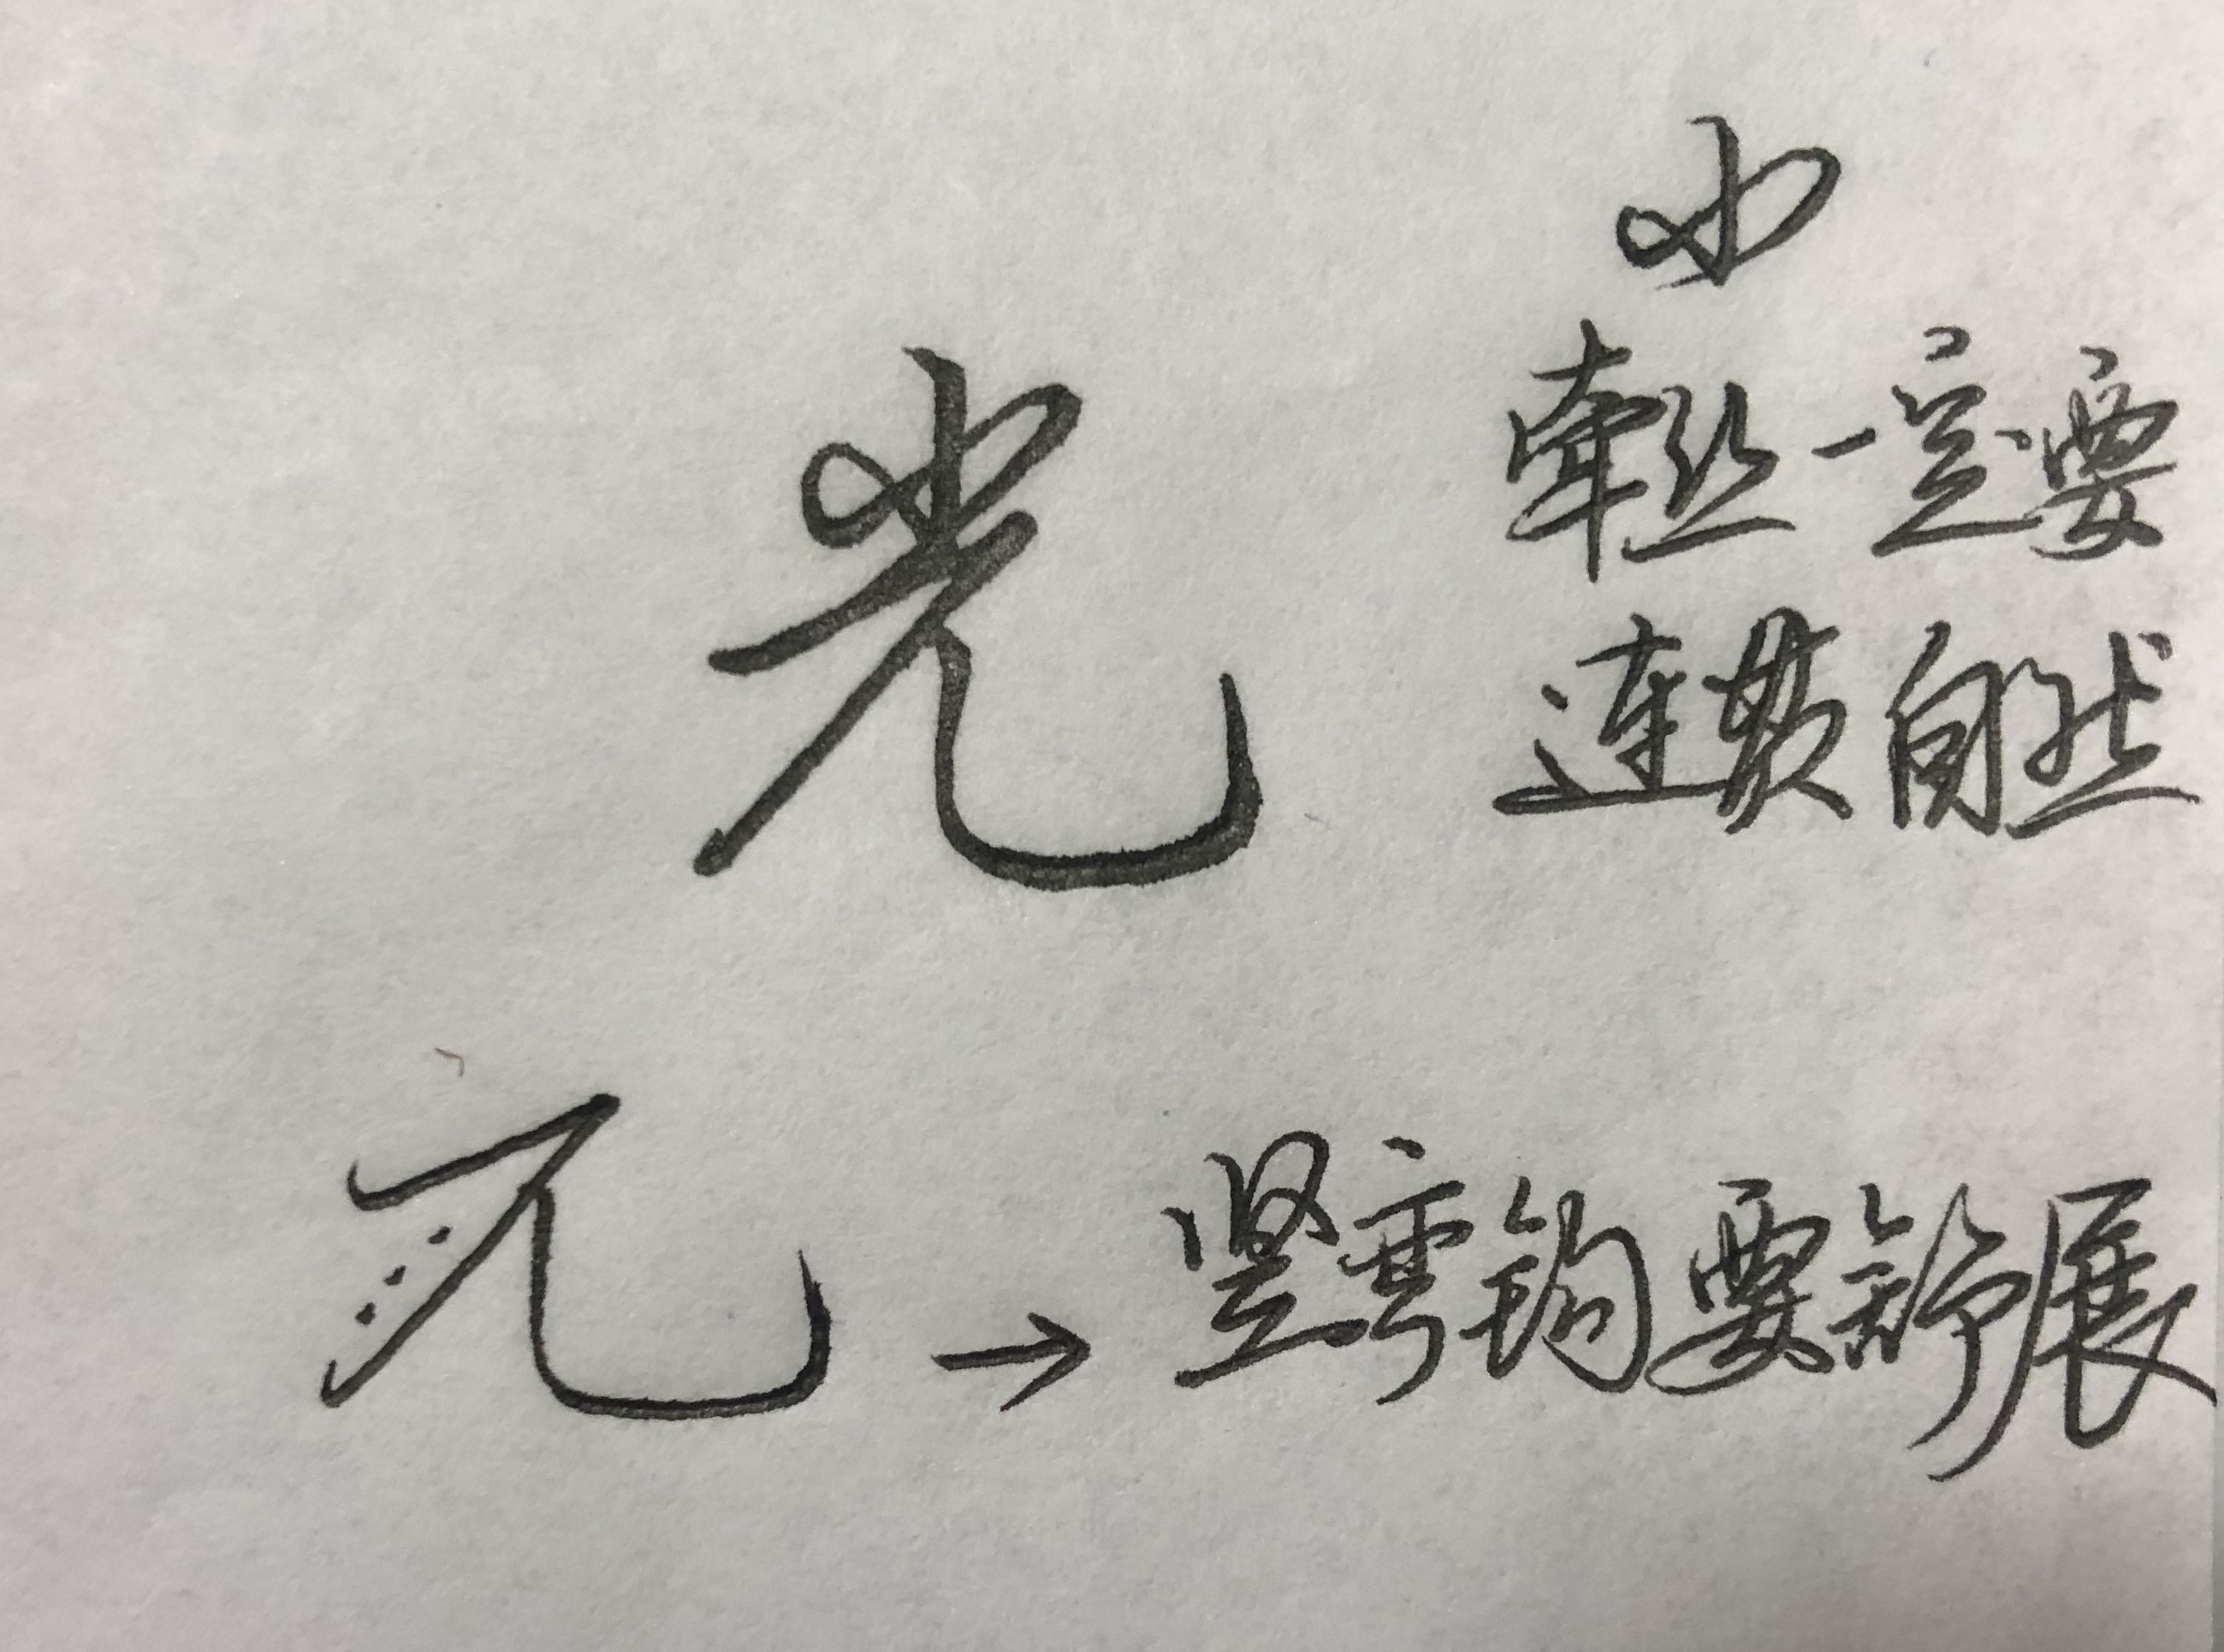 小
光
牵丝一定要
连贯自然
兀→竖弯钩要舒展